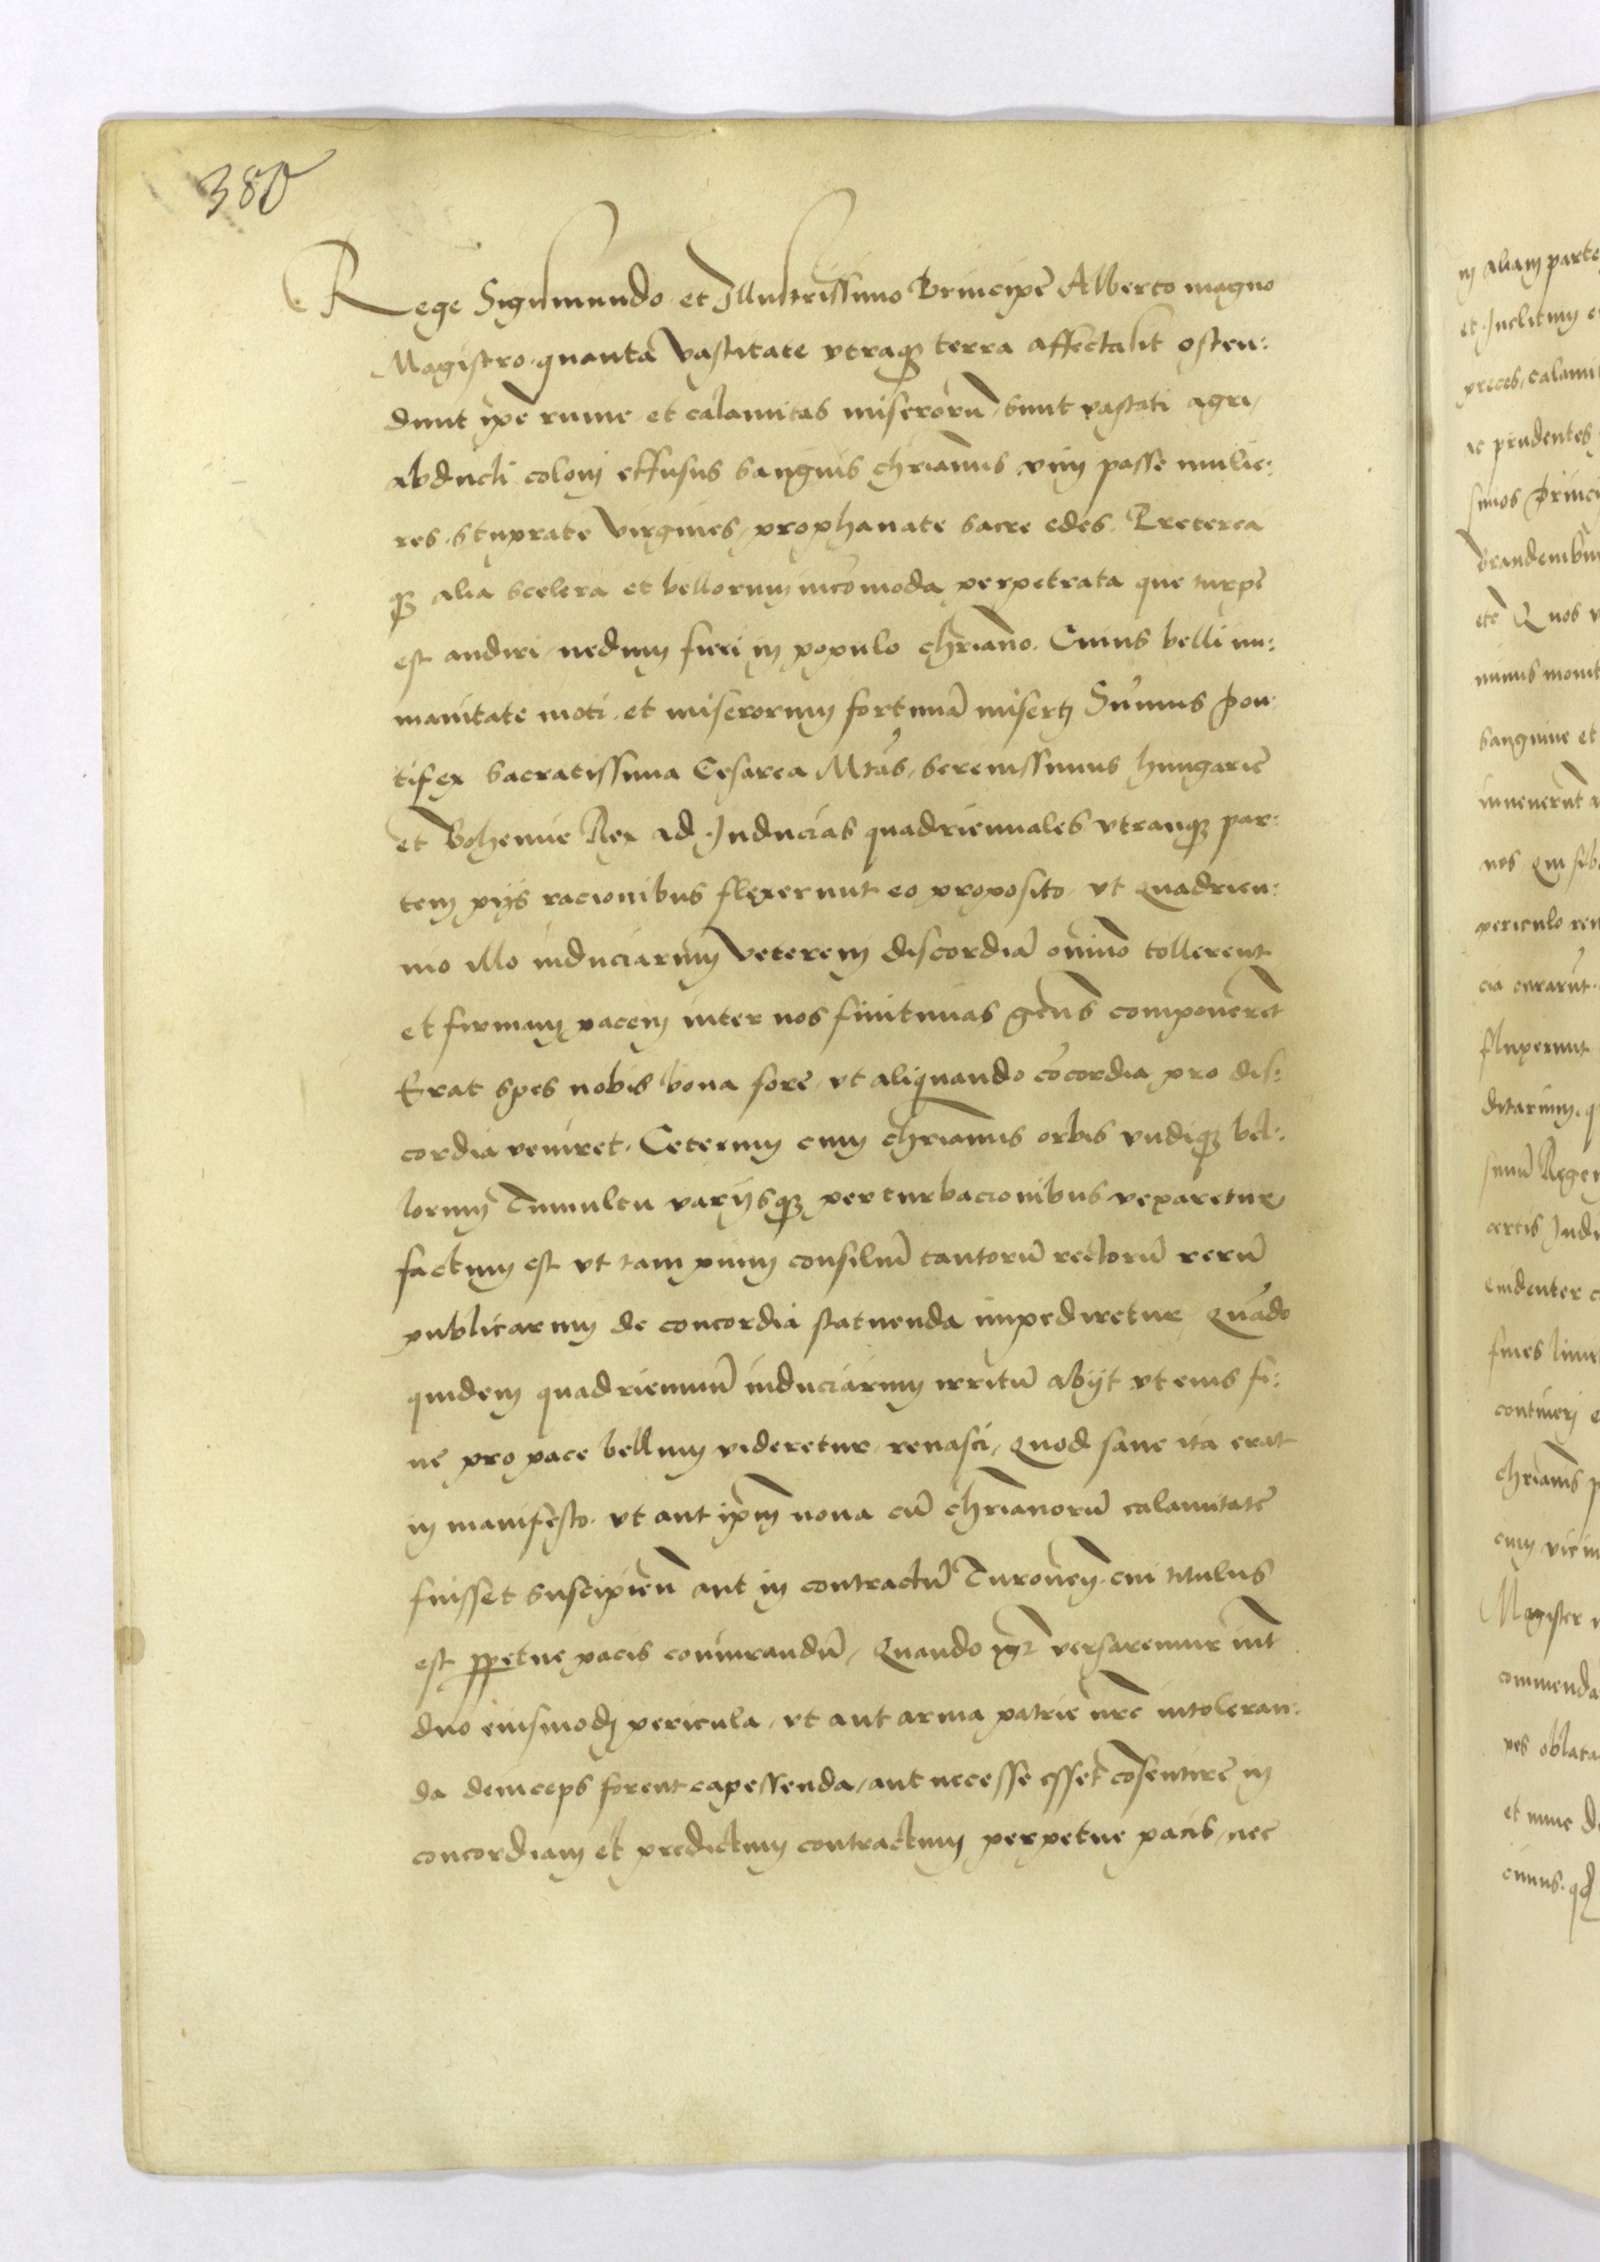 380
Rege Sigismundo et Illustrissimo Principe Alberto magno
Magistro, quanta vastitate vtraqȝ terra affecta sit osten:
dunt ip̄e ruine et calamitas miserorū, sunt vastati agri,
abducti coloni effusus sanguis chr̄ianus vim passe mulie:
res, stuprate virgines, prophanate sacre edes. Preterea
qȝ alia scelera et bellorum incōmoda perpetrata que turpe
est audiri, nedum fieri in populo chr̄iano. Cuius belli im:
manitate moti, et miserorum fortunā miserti Sūmus Pon:
tifex Sacratissima Cesarea Mtās, serenissimus Hungarie
et Bohemie Rex ad Inducias quadriennales vtranqȝ par:
tem pijs racionibus flexerunt eo proposito, vt quadrien:
nio illo induciarum veterem discordiā om̄ino tollerent
et firmam pacem inter nos finitimas gen̄s componerēt
Erat spes nobis bona fore, vt aliquando cōcordia pro dis:
cordia veniret. Ceterum cum chr̄ianus orbis vndiqȝ bel:
lorum Tumultu varijsqȝ perturbacionibus vexaretur
factum est vt tam pium consiliū tantorū rectorū rerū
publicarum de concordia statuenda impediretur, Quādo
quidem quadrienniū induciarum irritū abijt vt eius fi:
ne pro pace bellum videretur renasci, Quod sane ita erat
in manifesto, vt aut ip̄m noua cū chr̄ianorū calamitate
fuisset suscipien̄ aut in contractū Turonen̄. cui titulus
est ꝑpetue pacis coniurandū, Quando igr̄ versaremur int̄
duo eiusmodi pericula, vt aut arma patrie nr̄e intoleran:
da deinceps forent capessenda, aut necesse esset cōsentire in
concordiam et predictum contractum perpetue pacis, nec
m aliam parte
et Inclitum
preces, calami
ac prudentes
simos Princi
Brandenbur
etc̄ Quos
nimus monit
sanguine et
inuenerūt
nos qui sib
periculo
cia curarūt
stuperunt
ditarum, q
simū Regem
certis Indu
euidenter
fines limit
chr̄ianis p
cum vic
Magister
commenda
pes oblata
et nunc de
cimus, qd̄